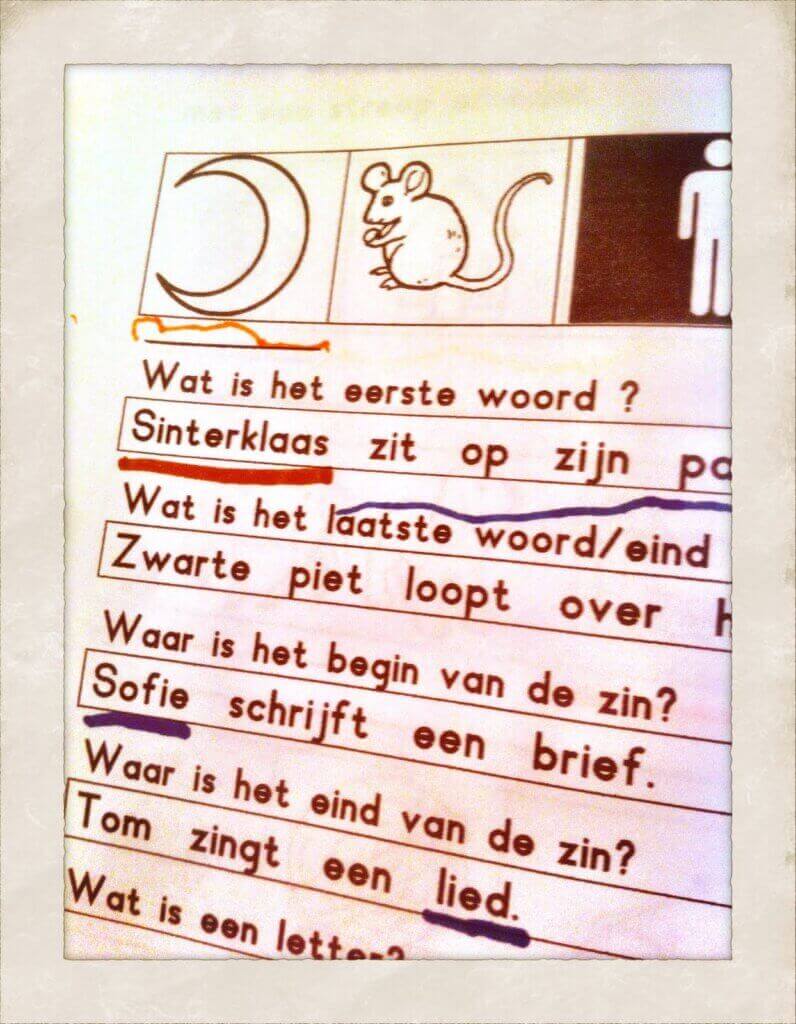 Wat is het eerste woord ?
Sinterklaas zit op zijn
Wat is het laatste woord/eind
Zwarte piet loopt over
Waar is het begin van de zin?
Sofie schrijft een brief.
Waar is het eind van de zin?
Tom zingt een lied.
Wat is een letter?